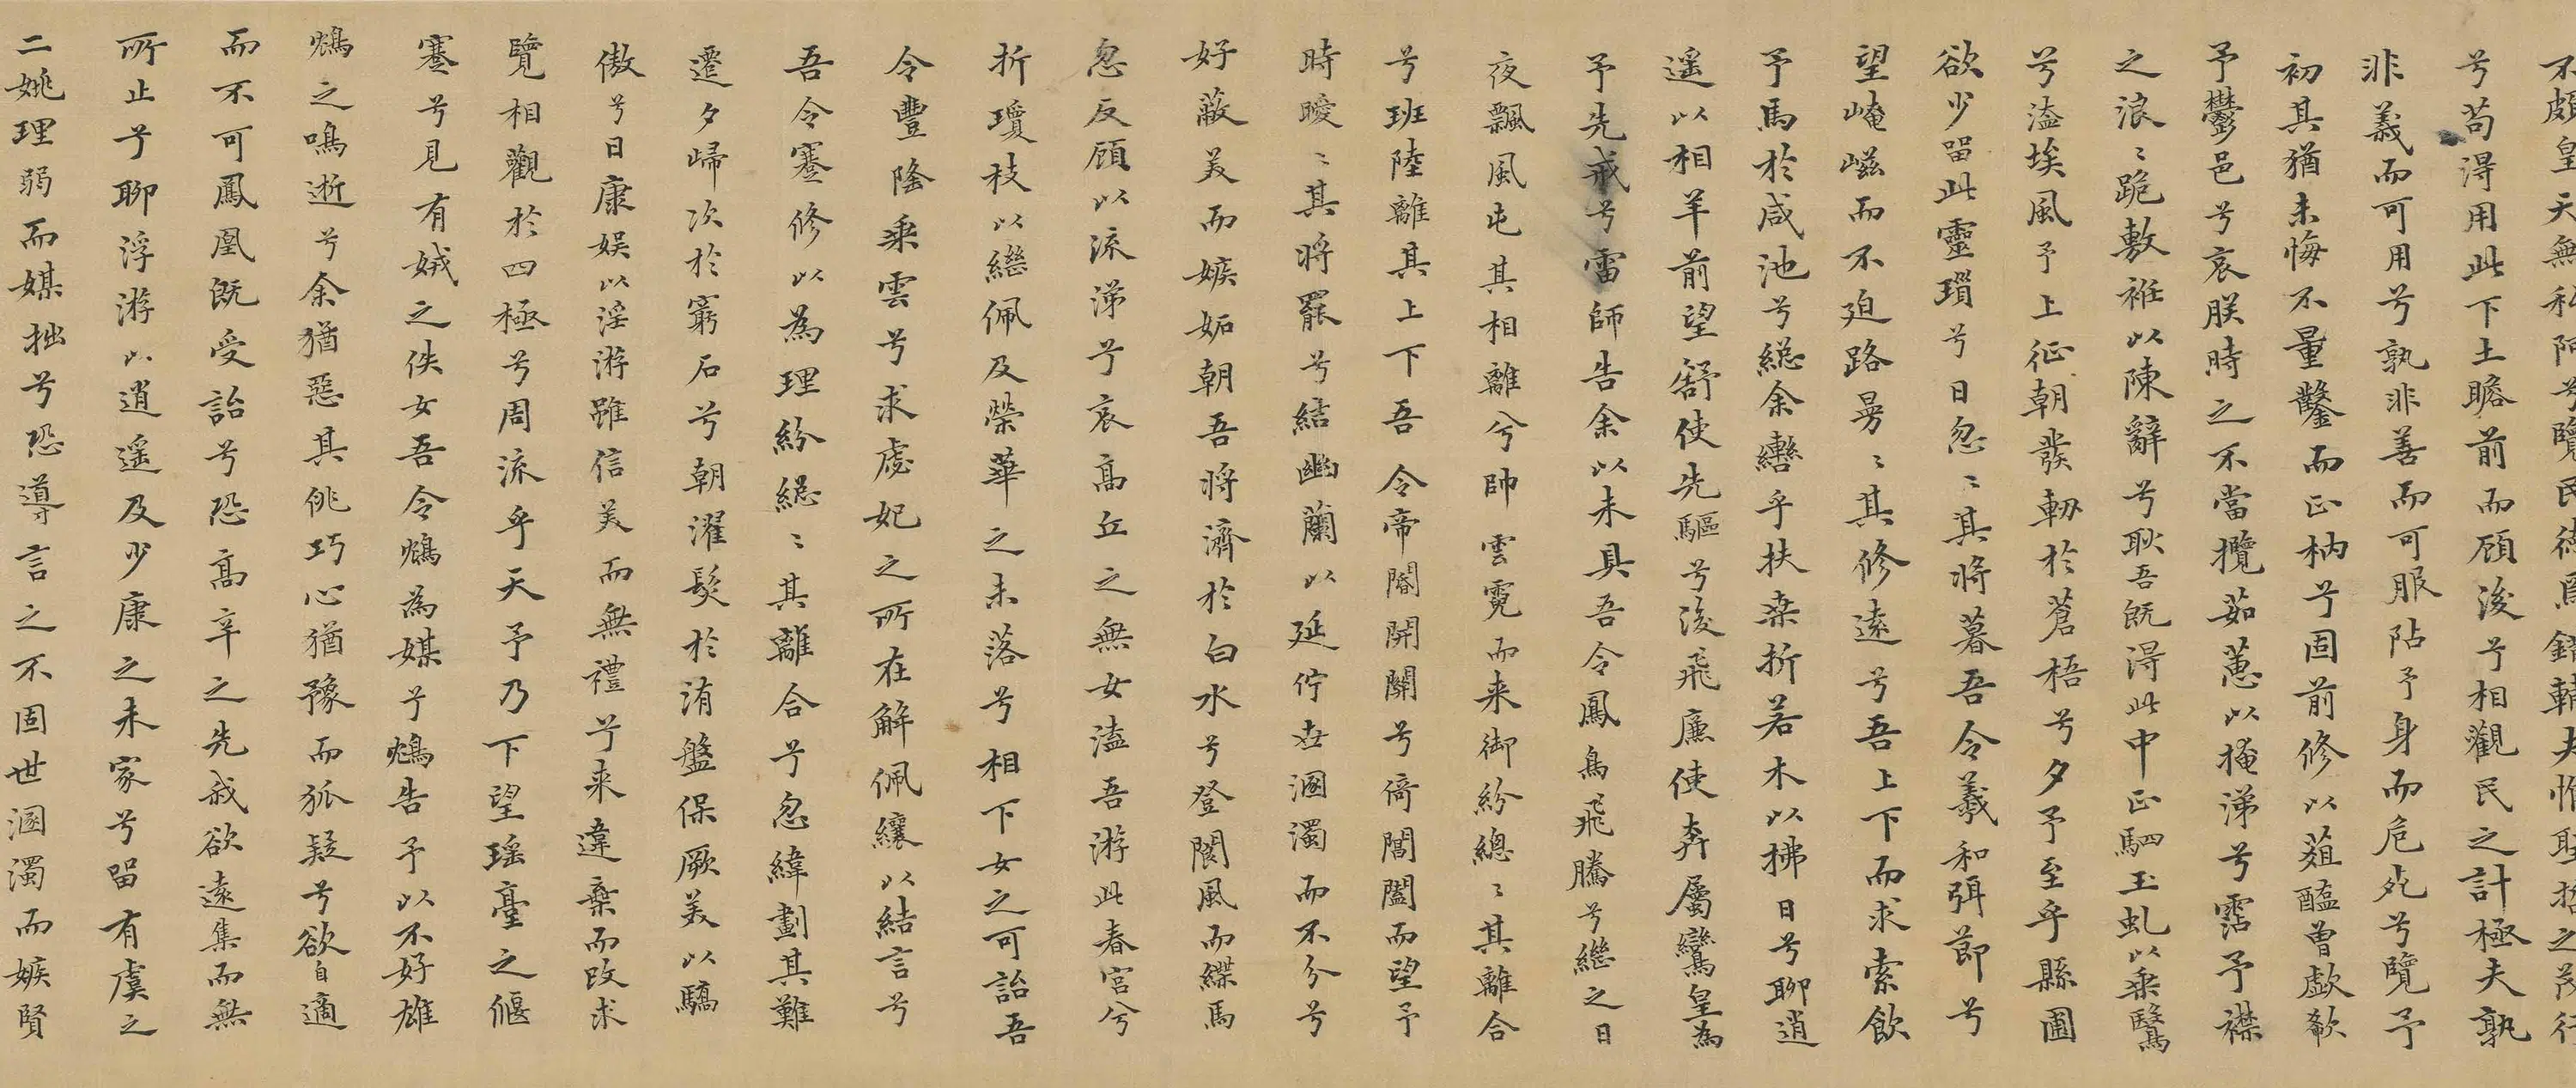 不頗皇天無私阿兮覽民德焉錯輔夫惟聖哲之茂行
兮苟得用此下土瞻前而顧後兮相觀民之計極夫孰
非義而可用兮孰非善而可服阽予身而危死兮覽予
初其猶未悔不量鑿而正枘兮固前修以葅醢曾歔欷
予鬱邑兮哀朕時之不當攬茹蕙以掩涕兮霑予襟
之浪〻跪敷袵以陳辭兮耿吾既得此中正駟玉虬以乘鷖
兮溘埃風予上征朝發軔於蒼梧兮夕予至乎縣圃
欲少留此靈瑣兮日忽〻其將暮吾令羲和弭節兮
望崦嵫而不迫路曼〻其修遠兮吾上下而求索飲
予馬於咸池兮緫余轡乎扶桑折若木以拂日兮聊逍
遥以相羊前望舒使先驅兮後飛廉使奔屬鸞皇為
予先戒兮雷師告余以未具吾令鳳鳥飛騰兮繼之日
夜飄風屯其相離兮帥雲霓而来御紛總〻其離合
兮班陸離其上下吾令帝閽開關兮倚閶闔而望予
時曖〻其將罷兮結幽蘭以延佇世溷濁而不分兮
好蔽美而嫉妬朝吾將濟於白水兮登閬風而緤馬
忽反顧以流涕兮哀高丘之無女溘吾游此春宮兮
折瓊枝以繼佩及榮華之未落兮相下女之可詒吾
令豐隆乘雲兮求虙妃之所在解佩纕以結言兮
吾令蹇修以為理紛緫〻其離合兮忽緯劃其難
遷夕歸次於窮石兮朝濯髮於洧盤保厥美以驕
傲兮日康娱以淫游雖信美而無禮兮来違棄而改求
覽相觀於四極兮周流乎天予乃下望瑶臺之偃
蹇兮見有娀之佚女吾令鴆為媒兮鴆告予以不好雄
鴆之鳴逝兮余猶惡其佻巧心猶豫而狐疑兮欲自適
而不可鳳凰既受詒兮恐高辛之先我欲遠集而無
所止兮聊浮游以逍遥及少康之未家兮留有虞之
二姚理弱而媒拙兮恐導言之不固世溷濁而嫉賢